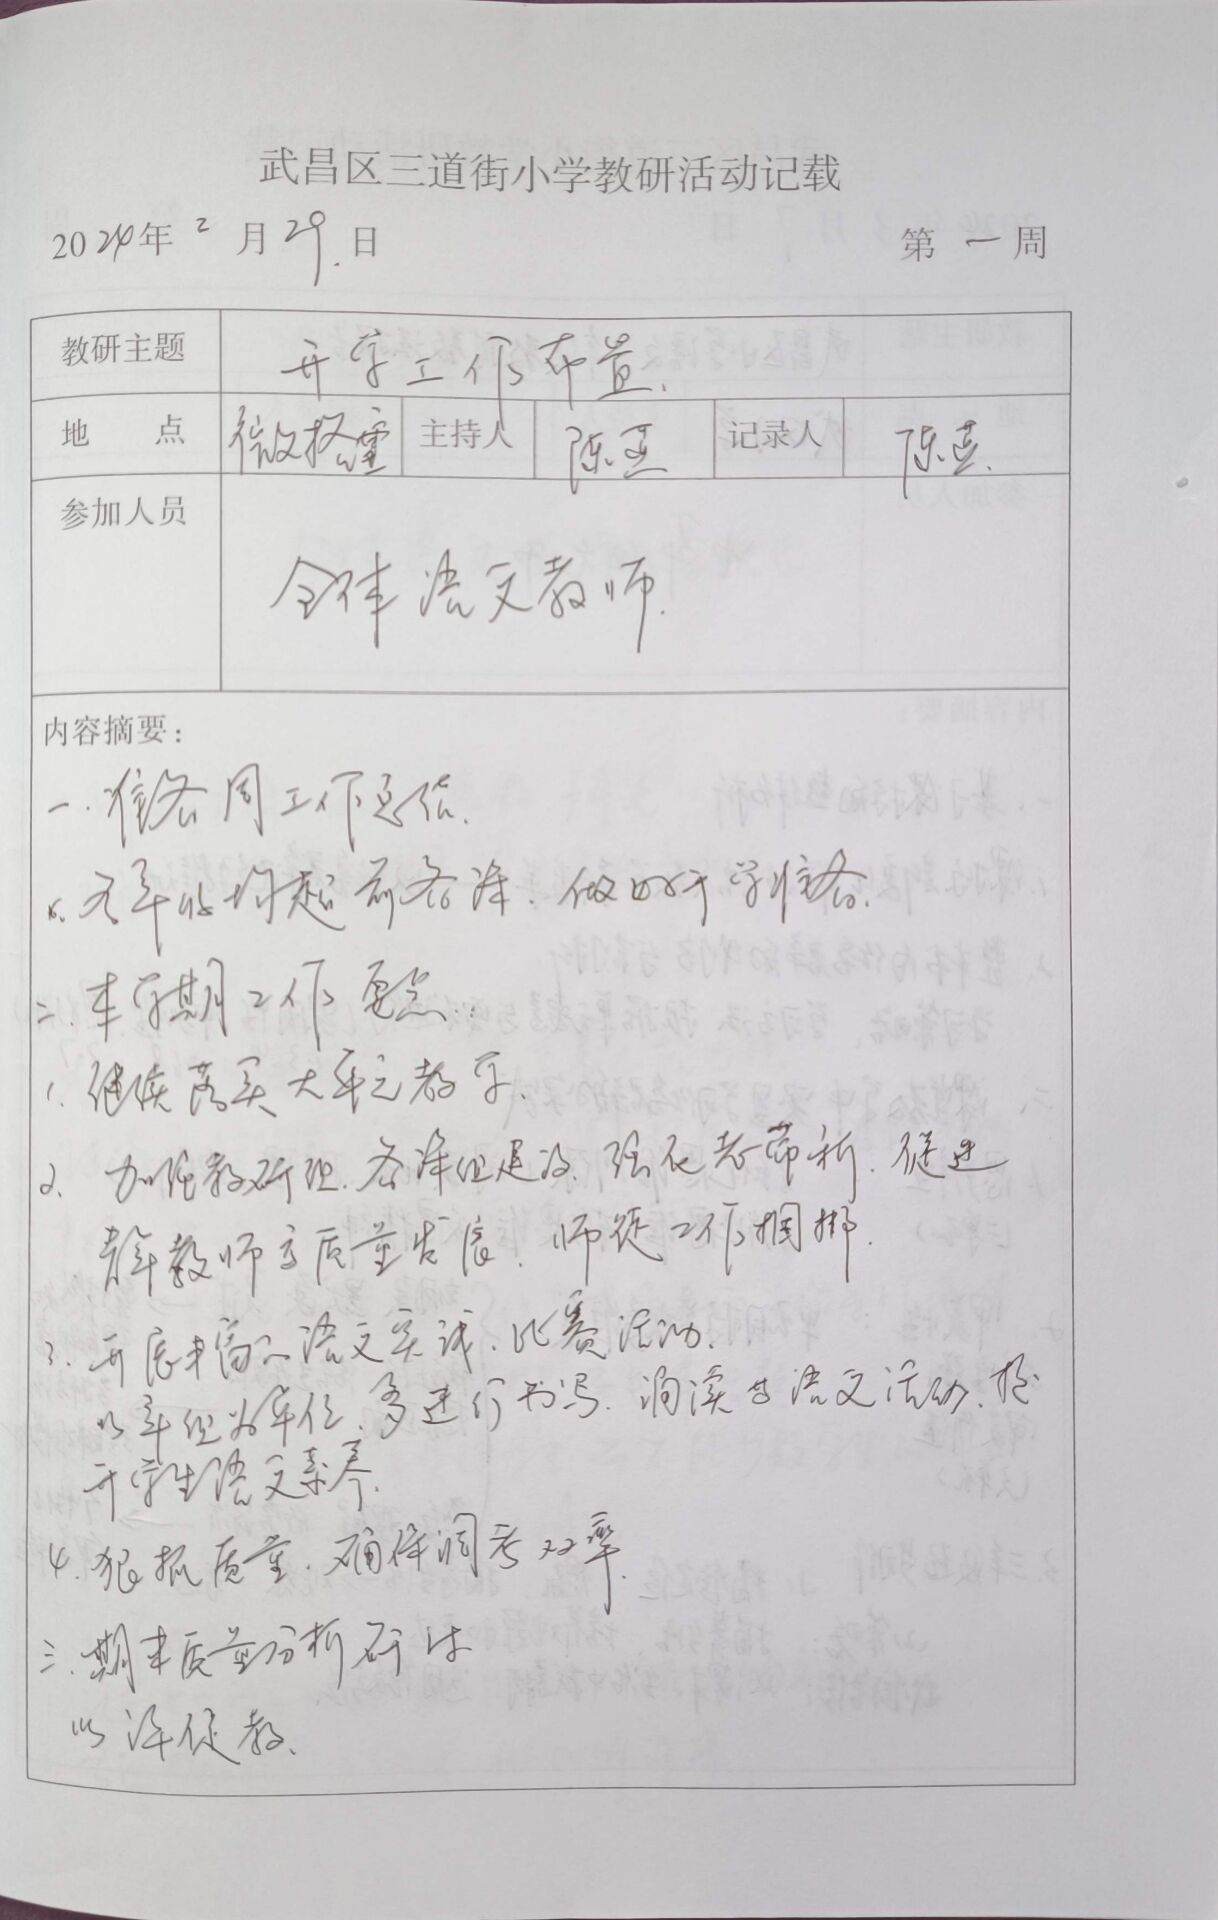 武昌区三道街小学教研活动记载
2024年2月29.日 第一周
教研主题 开学工作布置.
地点 微格室 主持人 陈 记录人 陈
参加人员 全体语文教师.
内容摘要：
一.准备周工作总结.
各年级均超前备课.做好开学准备.
二.本学期工作要点:
1.继续落实大单元教学.
2.加强教研组.备课组建设.强化老带新.促进
青年教师高质量发展.师徒工作捆绑.
3.开展丰富的语文实践.比赛活动.
以年组为单位.多进行书写.诵读等语文活动.提
升学生语文素养.
4.狠抓质量.确保调考双率.
三.期末质量分析研讨
以评促教.